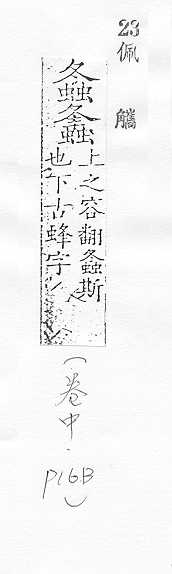 23
佩觿
螽䗬
上之容翻螽斯
也下古蜂字
(卷中.
P16B)